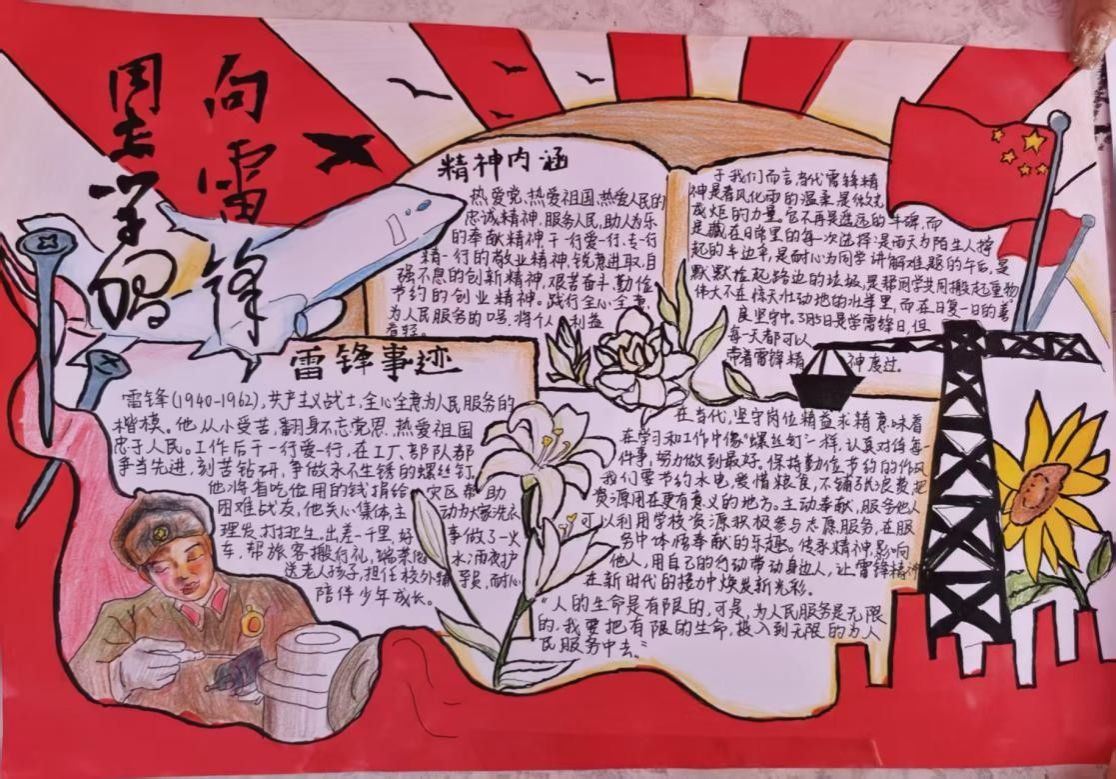 向雷锋
同志学习
精神内涵
热爱党、热爱祖国、热爱人民的
忠诚精神,服务人民,助人为乐
的奉献精神,干一行爱一行、专一行
精一行的敬业精神,锐意进取、自
强不息的创新精神,艰苦奋斗、勤俭
节约的创业精神。践行全心全意
为人民服务的口号,将个人利益
看轻。
于我们而言,当代雷锋精
神是春风化雨的温柔,是微光
成炬的力量。它不再是遥远的丰碑,而
是藏在日常里的每一次选择:是雨天为陌生人撑
起的半边伞,是耐心为同学讲解难题的午后,是
默默捡起路边的垃圾,是帮同学共同搬起重物
伟大不在惊天动地的壮举里,而在日复一日的善
良坚守中。3月5日是学雷锋日,但
每一天都可以
带着雷锋精神度过。
雷锋事迹
雷锋(1940-1962),共产主义战士,全心全意为人民服务的
楷模。他从小受苦,翻身不忘党恩,热爱祖国
忠于人民。工作后干一行爱一行,在工厂、部队都
争当先进,刻苦钻研,争做永不生锈的螺丝钉。
他将省吃俭用的钱捐给灾区,帮助
困难战友,他关心集体,主动为大家洗衣
理发、打扫卫生。出差一千里,好事做了一火
车,帮旅客搬行礼,端茶倒水,雨夜护
送老人孩子,担任校外辅导员,耐心
陪伴少年成长。
在当代,坚守岗位精益求精意味着
在学习和工作中像“螺丝钉”一样,认真对待每一
件事,努力做到最好。保持勤俭节约的作风
我们要节约水电,爱惜粮食,不铺张浪费,把
资源用在更有意义的地方。主动奉献,服务他人
可以利用学校资源积极参与志愿服务,在服
务中体悟奉献的乐趣。传承精神,影响
他人,用自己的行动带动身边人,让雷锋精神
在新时代的接力中焕发新光彩。
“人的生命是有限的,可是,为人民服务是无限
的,我要把有限的生命,投入到无限的为人
民服务中去。”